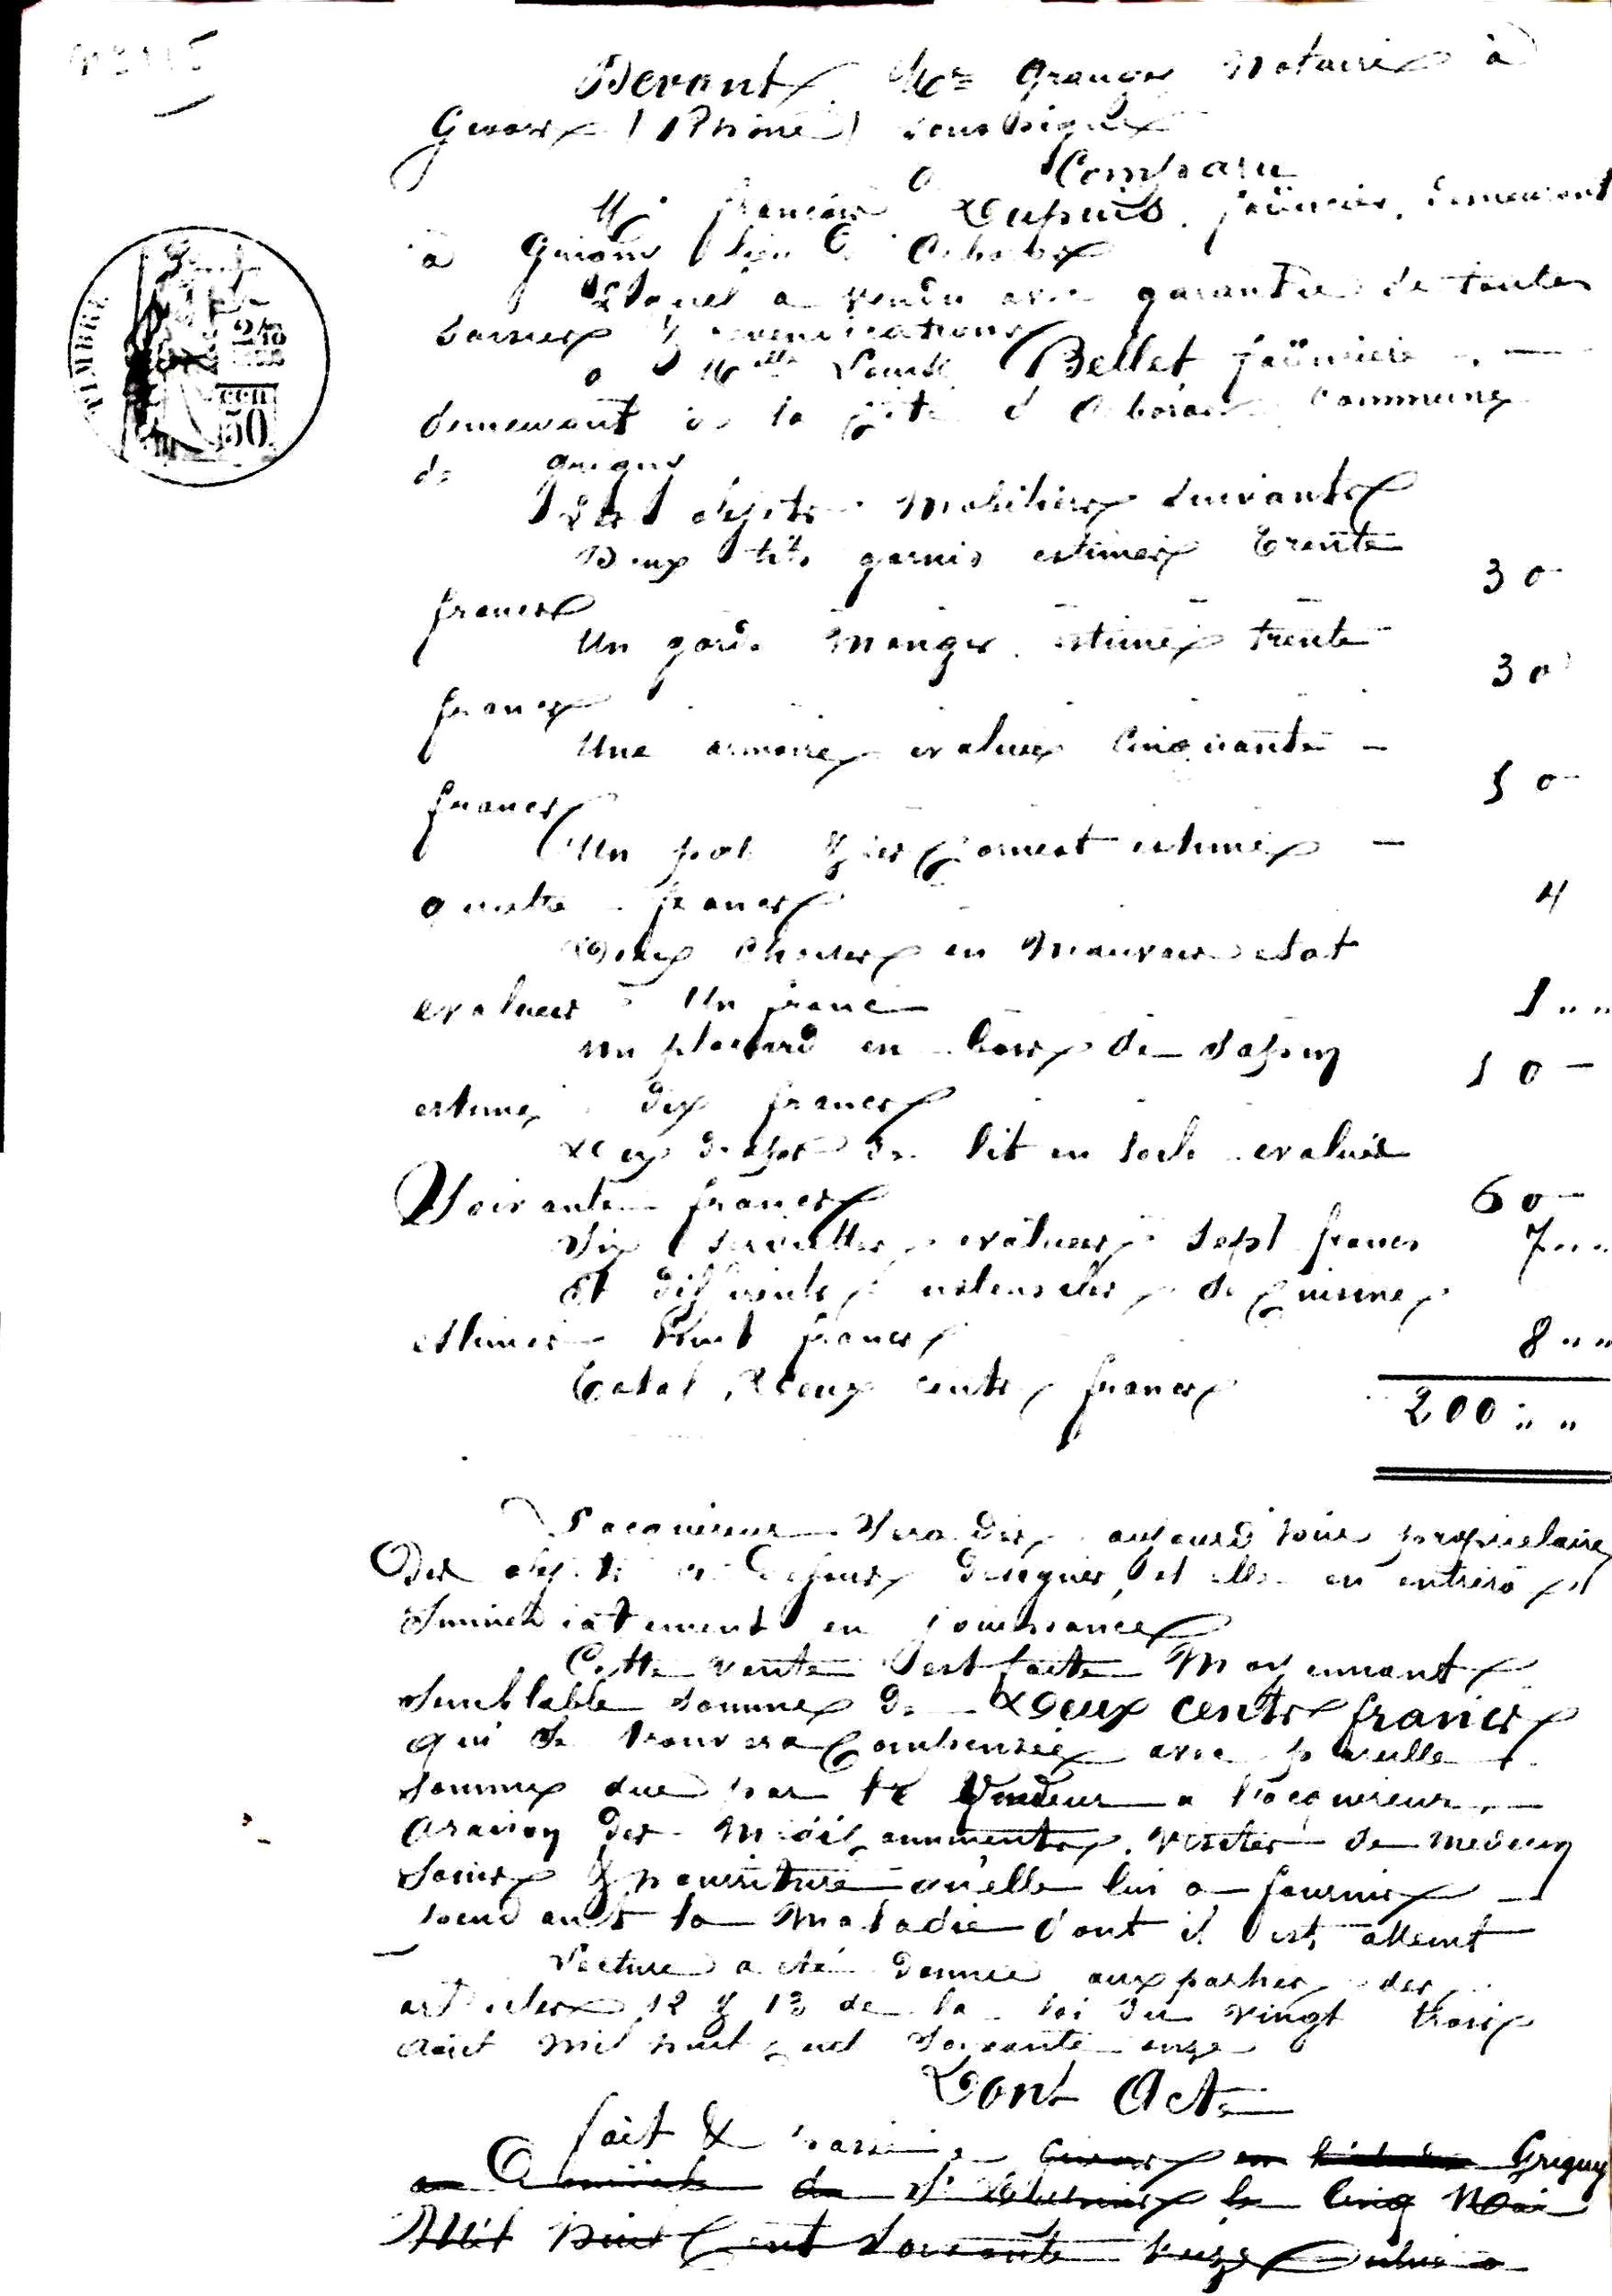 Devant Me Granger Notaire à
Givors (Rhône) soussigné
a Comparu
M. françois Dupuis, journalier, demeurant
à Grigny lieu
Lequel a vendu avec garantie de toutes
saisies & revendications
a Melle Louise Bellet journalière
demeurant commune
de Grigny
Les objets Mobiliers suivants
Deux lits garnis estimés trente
francs 30
Un garde manger estimé trente
francs 30
Une armoire evaluée cinquante
francs 50
Un estimé
quatre francs 4
Deux chaises en Mauvais etat
evaluées Un franc 1
un placard en bois de sapin 10
estimé dix francs
Deux draps de lit en toile evalués
Soixante francs 60
Six serviettes evaluées sept francs 7
Et differents ustensiles de Cuisine
estimés huit francs 8
Total, Deux cents francs 200
L'acquereur sera dès aujourd'hui propriétaire
Des objets ci dessus designés, et elle en entrera
Immédiatement en jouissance
Cette vente est faite Moyennant
Semblable somme de Deux cents francs
qui se trouvera Compensée avec pareille
somme due par le Vendeur a l'acquereur
a raison des Médicamments, visites de medecin
Soins & nourriture qu'elle lui a fournis
pendant la Maladie dont il est atteint
Lecture a été donnée aux parties des
articles 12 & 13 de la loi du vingt trois
Août mil huit cent soixante onze
Dont Acte
fait & passé a Givors en l'étude Grigny
le cinq Mai
Mil huit Cent soixante
TIMBRE
CEN
50